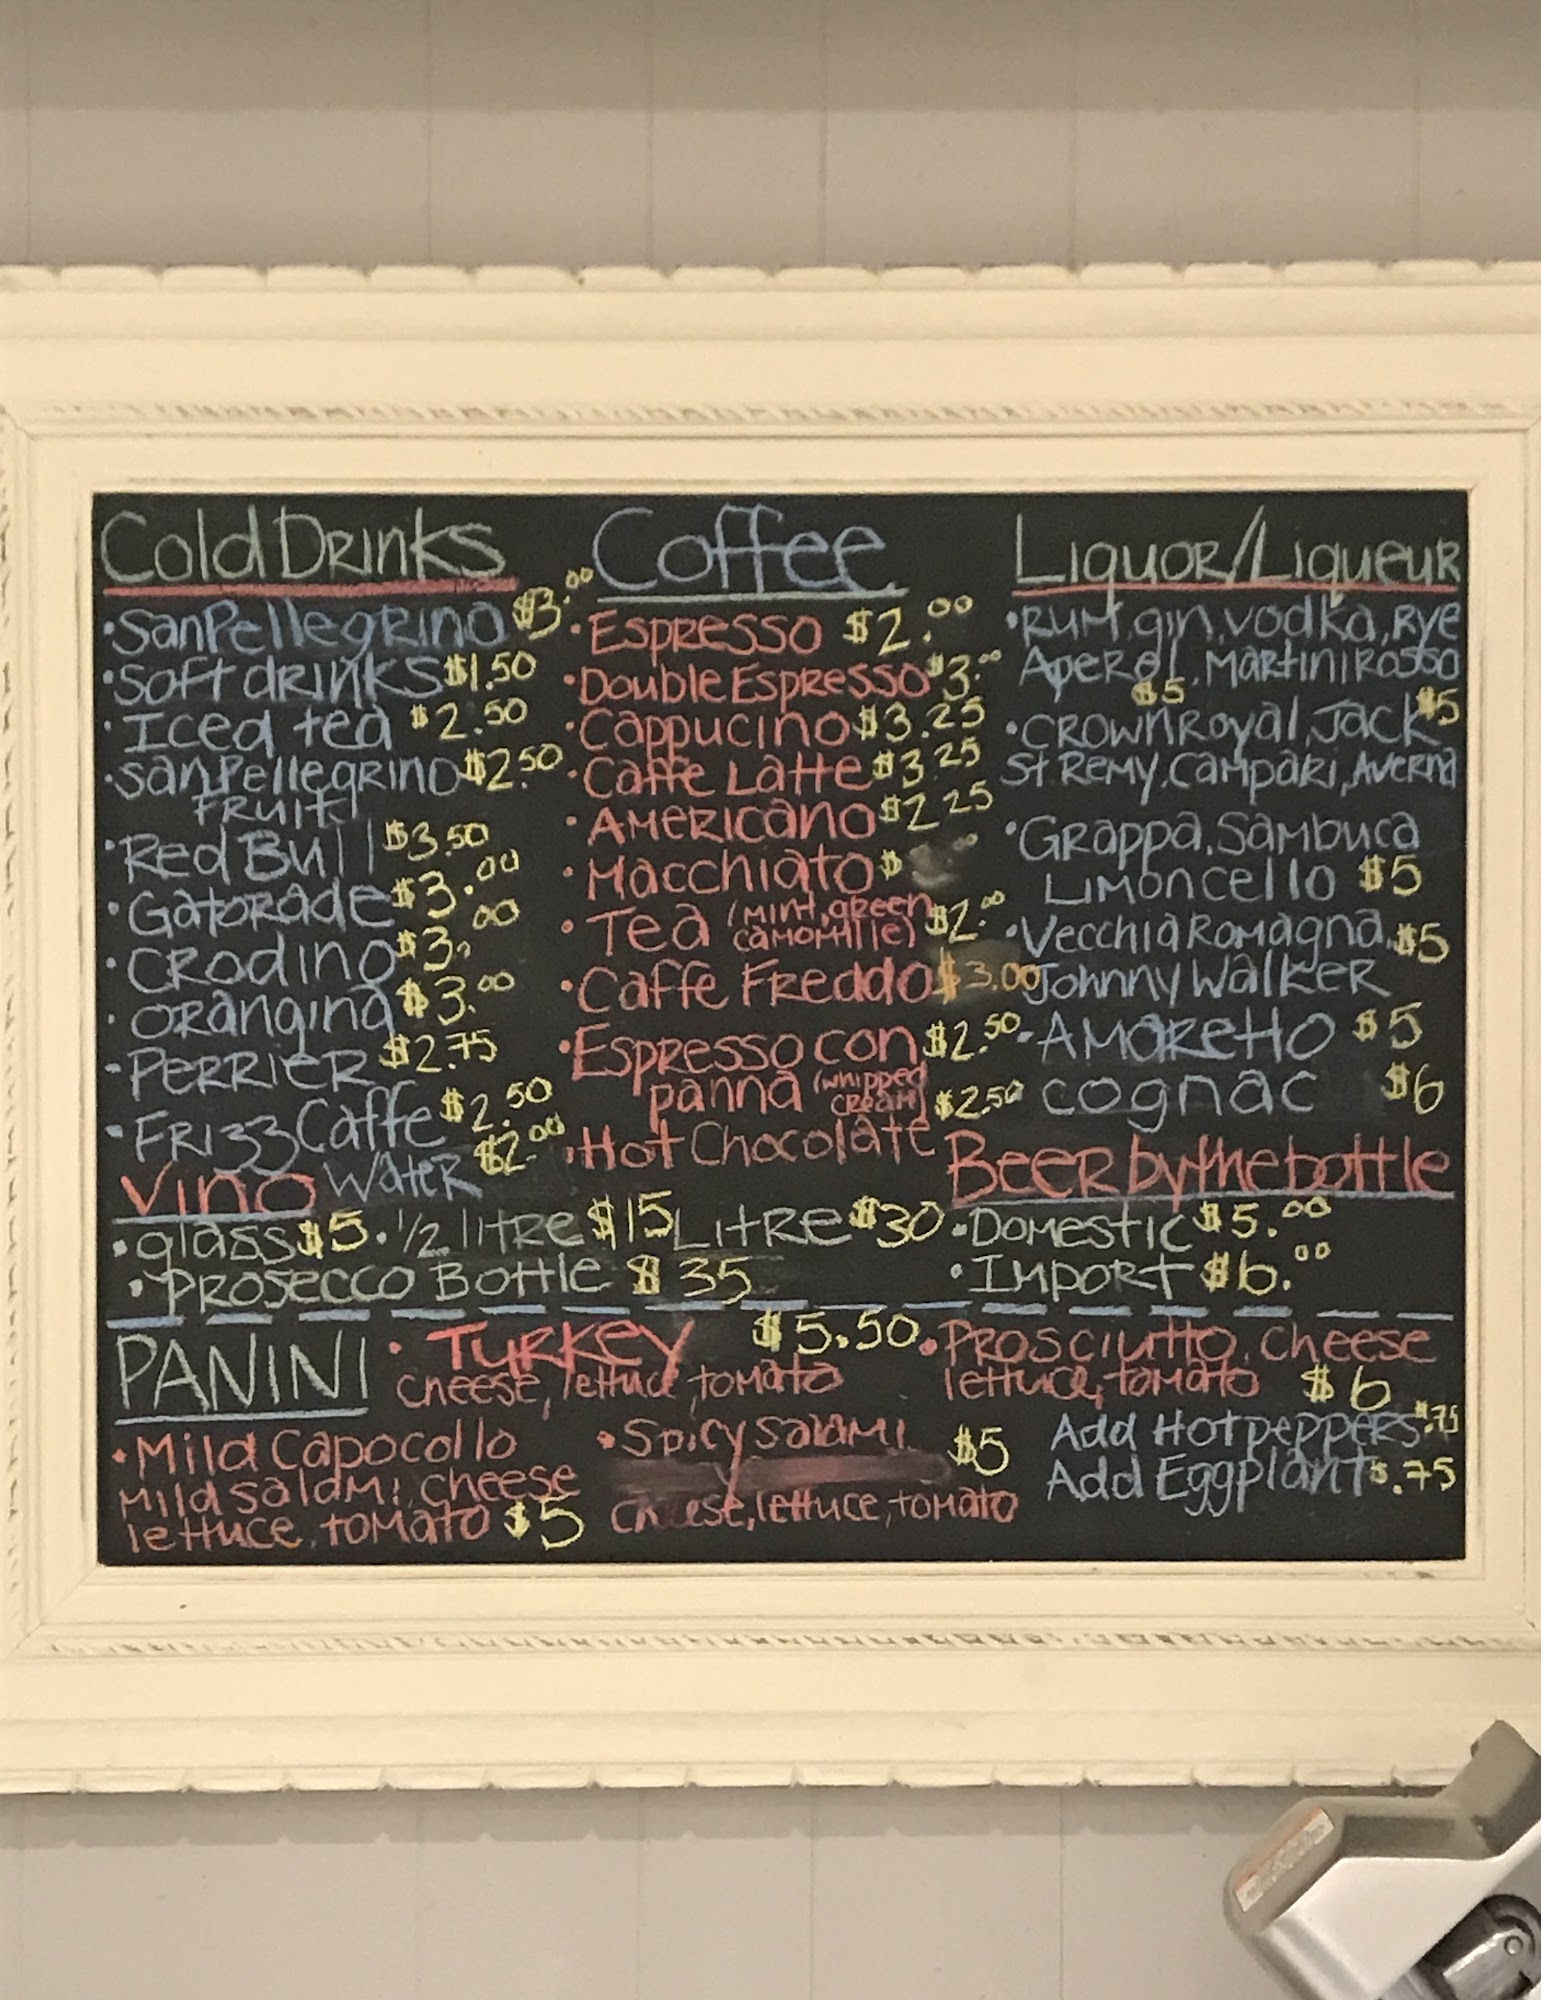 Cold Drinks
• San Pellegrino $3.00
• Soft drinks $1.50
• Iced tea $2.50
• San Pellegrino $2.50
Fruit
• Red Bull $3.50
• Gatorade $3.00
• Crodino $3.00
• Orangina $3.00
• Perrier $2.75
• Frizz Caffe $2.50
Water $2.00
Coffee
• Espresso $2.00
• Double Espresso $3.00
• Cappucino $3.25
• Caffe Latte $3.25
• Americano $2.25
• Macchiato $
• Tea (mint, green $2.00
camomille)
• Caffe Freddo $3.00
• Espresso con $2.50
panna (whipped
cream)
• Hot Chocolate $2.50
Liquor/Liqueur
• Rum, gin, vodka, Rye
Aperol, Martini Rosso
$5
• Crown Royal, Jack $5
St. Remy, Campari, Averna
• Grappa, Sambuca
Limoncello $5
• Vecchia Romagna, $5
Johnny Walker
• Amaretto $5
Cognac $6
Beer by the bottle
• Domestic $5.00
• Import $6.00
Vino
• glass $5 • 1/2 litre $15 Litre $30
• Prosecco Bottle $35
PANINI
• Turkey $5.50
cheese, lettuce, tomato
• Prosciutto, cheese
lettuce, tomato $6
• Mild Capocollo
Mild salami, cheese
lettuce, tomato $5
• Spicy Salami $5
cheese, lettuce, tomato
Add Hot peppers $.75
Add Eggplant $.75